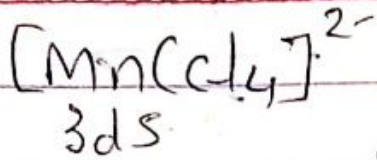 [Mn(Cl₄]²⁻
3d5